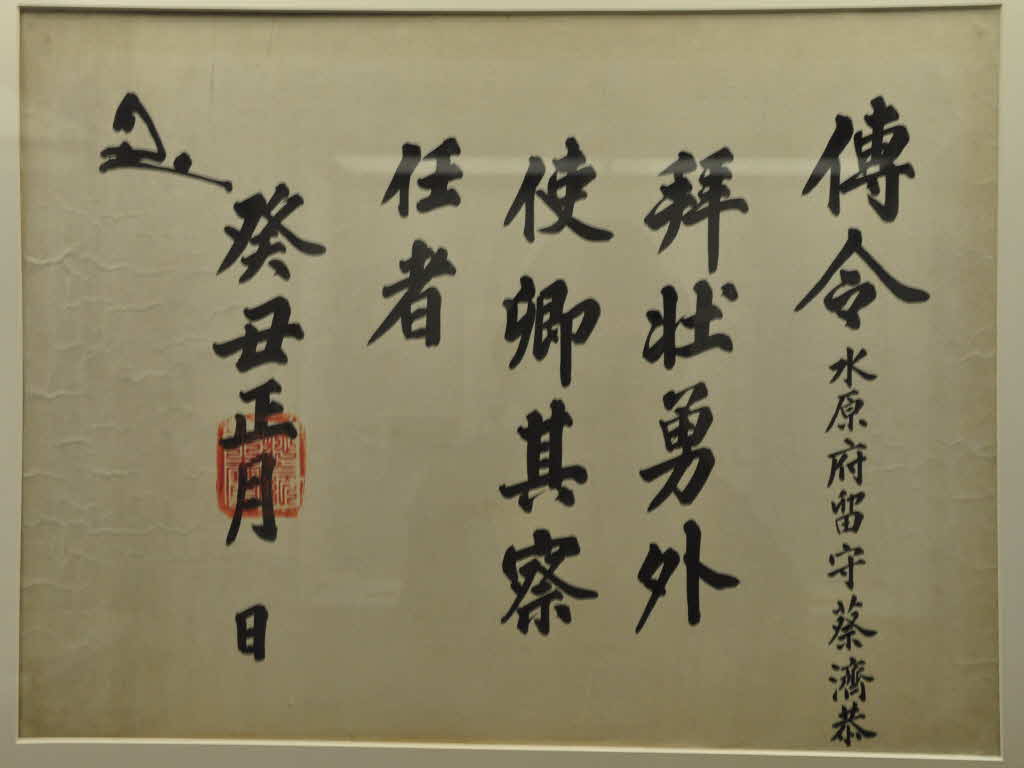 傳令 水原府留守蔡濟恭
拜壯勇外
使卿其察
任者
癸丑正月 日